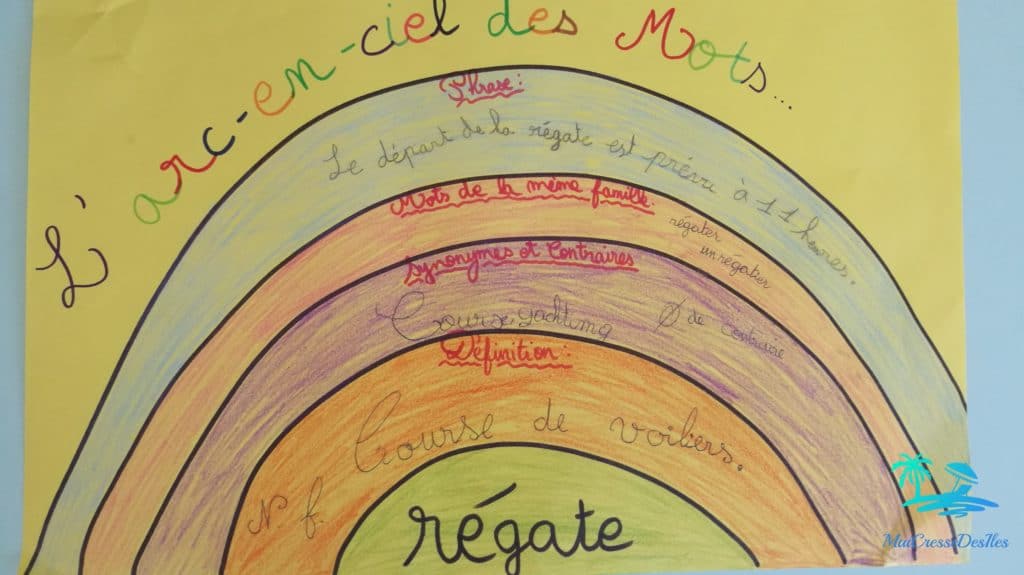 L'arc-en-ciel des Mots...
Phrase :
Le départ de la régate est prévu à 11 heures.
Mots de la même famille.
régater
un régatier
Synonymes et Contraires
Course, yachting
Ø de contraire
Définition :
Course de voiliers.
N. f.
régate
MaiCresseDesIles